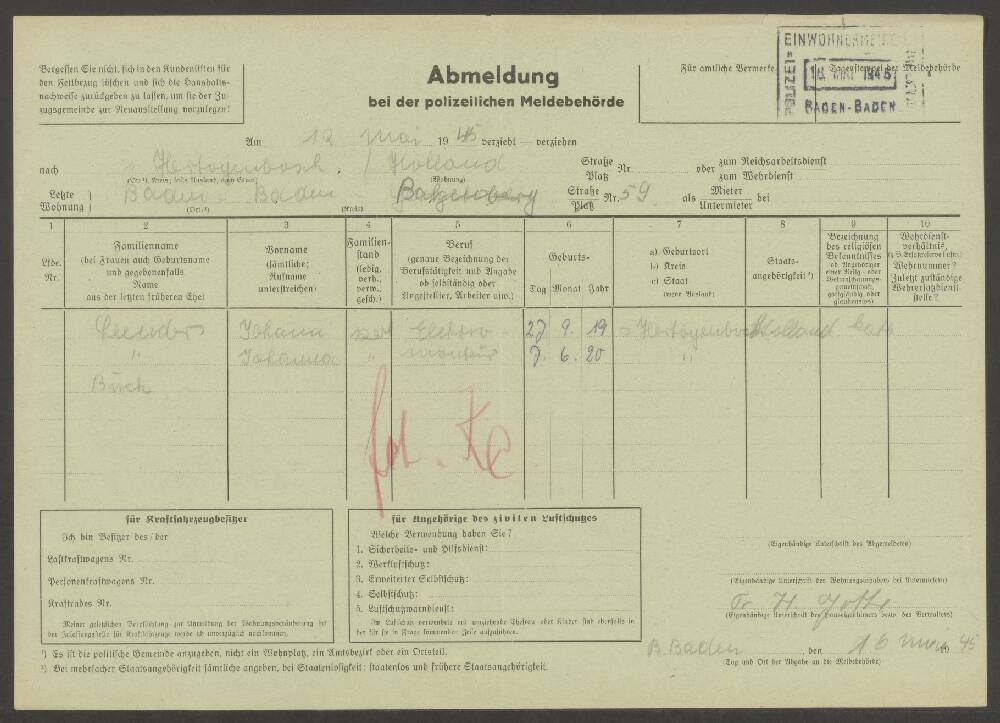 Vergessen Sie nicht, sich in den Kundenlisten für
den Fettbezug löschen und sich die Haushalts-
nachweise zurückgeben zu lassen, um sie der Zu-
zugsgemeinde zur Neuausstellung vorzulegen!
Abmeldung
bei der polizeilichen Meldebehörde
Für amtliche Vermerke
Tagesstempel der Meldebehörde
EINWOHNERMELDE
POLIZEI
16. MAI 1945
BADEN-BADEN
Am 12 Mai 1945 verzieht — verziehen
nach s Hertogenbosch / Holland Straße Platz Nr. oder zum Reichsarbeitsdienst zum Wehrdienst
(Ort¹), Kreis; falls Ausland, auch Staat)
Letzte Wohnung Baden-Baden Straße Platz Nr. 59 als Mieter Untermieter bei
(Ort¹) (Kreis) (Wohnung)
1 2 3 4 5 6 7 8 9 10
Lfde. Nr.
Familienname
(bei Frauen auch Geburtsname
und gegebenenfalls
Name
aus der letzten früheren Ehe)
Vorname
(sämtliche;
Rufname
unterstreichen)
Familien-
stand
(ledig,
verh.,
verw.,
gesch.)
Beruf
(genaue Bezeichnung der
Berufstätigkeit und Angabe
ob selbständig oder
Angestellter, Arbeiter usw.)
Geburts-
Tag Monat Jahr
a) Geburtsort
b) Kreis
c) Staat
(wenn Ausland)
Staats-
angehörigkeit ²)
Bezeichnung
des religiösen
Bekenntnisses
ob Angehöriger
einer Relig.- oder
Weltanschauungs-
gemeinschaft,
gottgläubig oder
glaubenslos)
Wehrdienst-
verhältnis,
Wehrnummer?
Zuletzt zuständige
Wehrersatzdienst-
stelle?
Johann Elektro- 27 9. 19 s Hertogenbosch Holland kath
" Johanna " monteur 7. 6. 20 "
Buck
für Kraftfahrzeugbesitzer
Ich bin Besitzer des/der
Lastkraftwagens Nr.
Personenkraftwagens Nr.
Kraftrades Nr.
Meiner gesetzlichen Verpflichtung zur Anmeldung der Wohnungsveränderung bei
der Zulassungsstelle für Kraftfahrzeuge werde ich unverzüglich nachkommen.
für Angehörige des zivilen Luftschutzes
Welche Verwendung haben Sie?
1. Sicherheits- und Hilfsdienst:
2. Werkluftschutz:
3. Erweiterter Selbstschutz:
4. Selbstschutz:
5. Luftschutzwarndienst:
Im Luftschutz verwendete mit umziehende Ehefrau oder Kinder sind ebenfalls in
der für sie in Frage kommenden Zeile aufzuführen.
(Eigenhändige Unterschrift des Abgemeldeten)
(Eigenhändige Unterschrift des Wohnungsinhabers bei Untermietern)
(Eigenhändige Unterschrift des Hauseigentümers bzw. des Verwalters)
B. Baden, den 16 Mai 1945
(Tag und Ort der Abgabe an die Meldebehörde)
¹) Es ist die politische Gemeinde anzugeben, nicht ein Wohnplatz, ein Amtsbezirk oder ein Ortsteil.
²) Bei mehrfacher Staatsangehörigkeit sämtliche angeben, bei Staatenlosigkeit: staatenlos und frühere Staatsangehörigkeit.